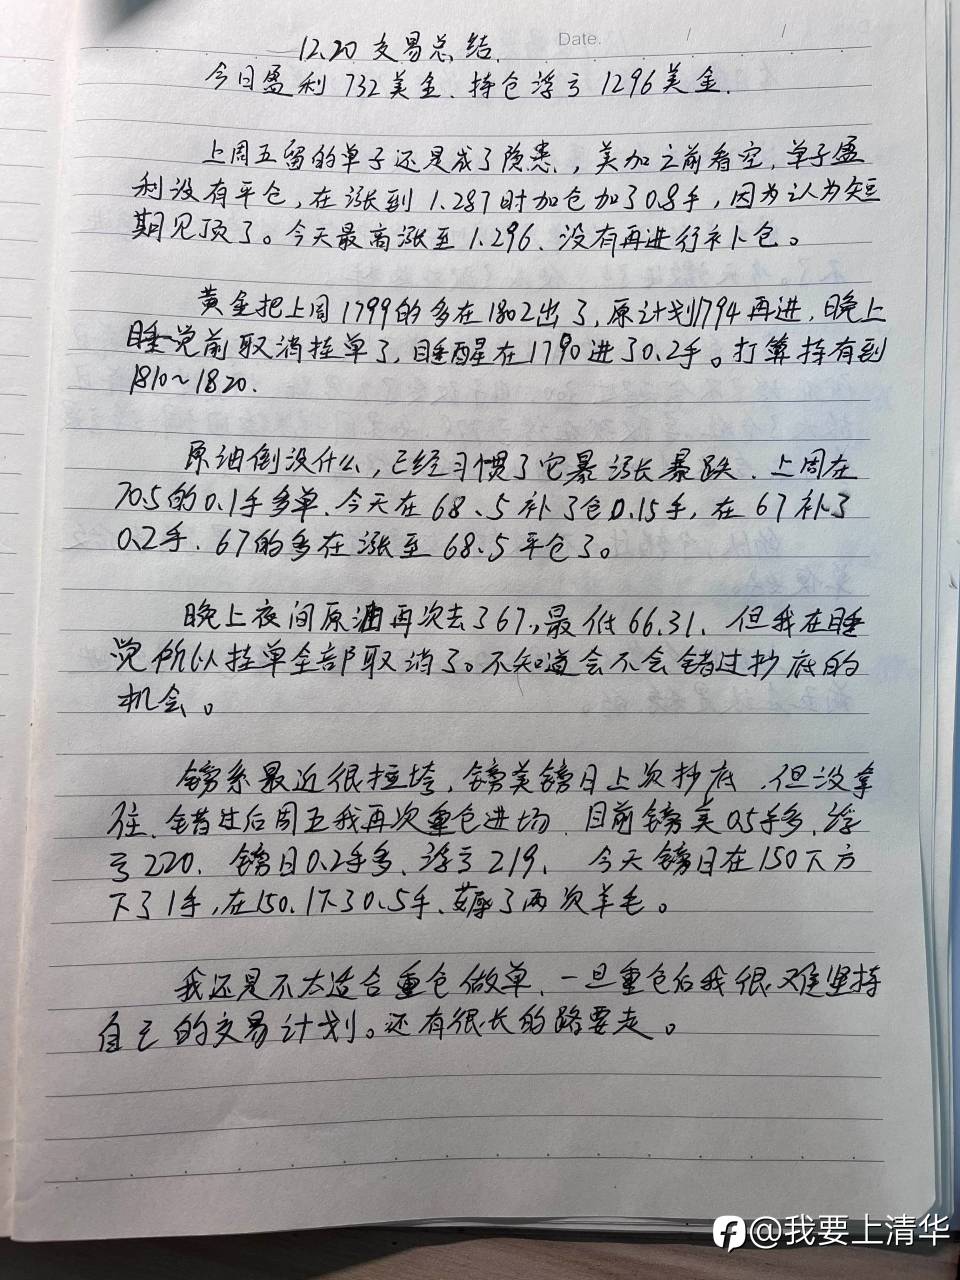 Date. / /
12.20 交易总结.
今日盈利 732美金、持仓浮亏 1296美金.
上周五留的单子还是成了隐患，美加之前看空,单子盈
利没有平仓,在涨到 1.287时加仓加了0.8手，因为认为短
期见顶了。今天最高涨至 1.296、没有再进行补仓。
黄金把上周1799的多在1802出了,原计划1794再进,晚上
睡觉前取消挂单了,睡醒在1790进了0.2手。打算持有到
1810~1820.
原油倒没什么,已经习惯了它暴涨暴跌、上周在
70.5的0.1手多单、今天在68.5补了仓0.15手,在67补了
0.2手、67的多在涨至68.5平仓了。
晚上夜间原油再次去了67,最低66.31、但我在睡
觉所以挂单全部取消了。不知道会不会错过抄底的
机会。
镑系最近很拉垮,镑美镑日上次抄底,但没拿
住、错过后周五我再次重仓进场、目前镑美0.5手多、浮
亏220、镑日0.2手多、浮亏219、今天镑日在150下方
下了1手,在150.1下了0.5手、薅了两次羊毛。
我还是不太适合重仓做单、一旦重仓后我很难坚持
自己的交易计划。还有很长的路要走。
@我要上清华